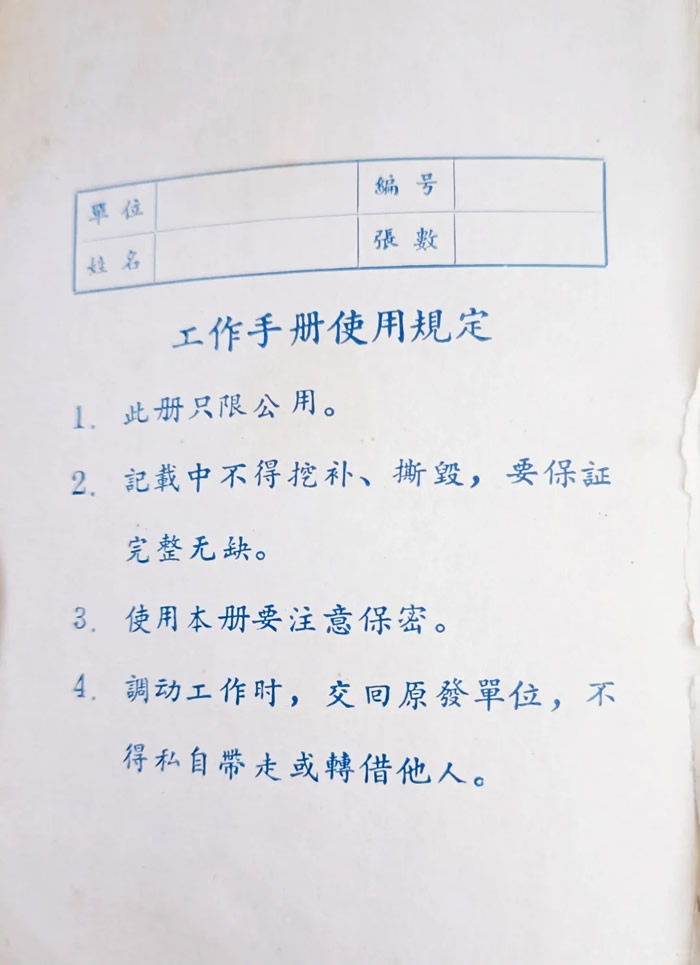 單位 編号
姓名 張數
工作手册使用規定
1. 此册只限公用。
2. 記載中不得挖补、撕毀，要保証
完整无缺。
3. 使用本册要注意保密。
4. 調动工作时，交回原發單位，不
得私自帶走或轉借他人。